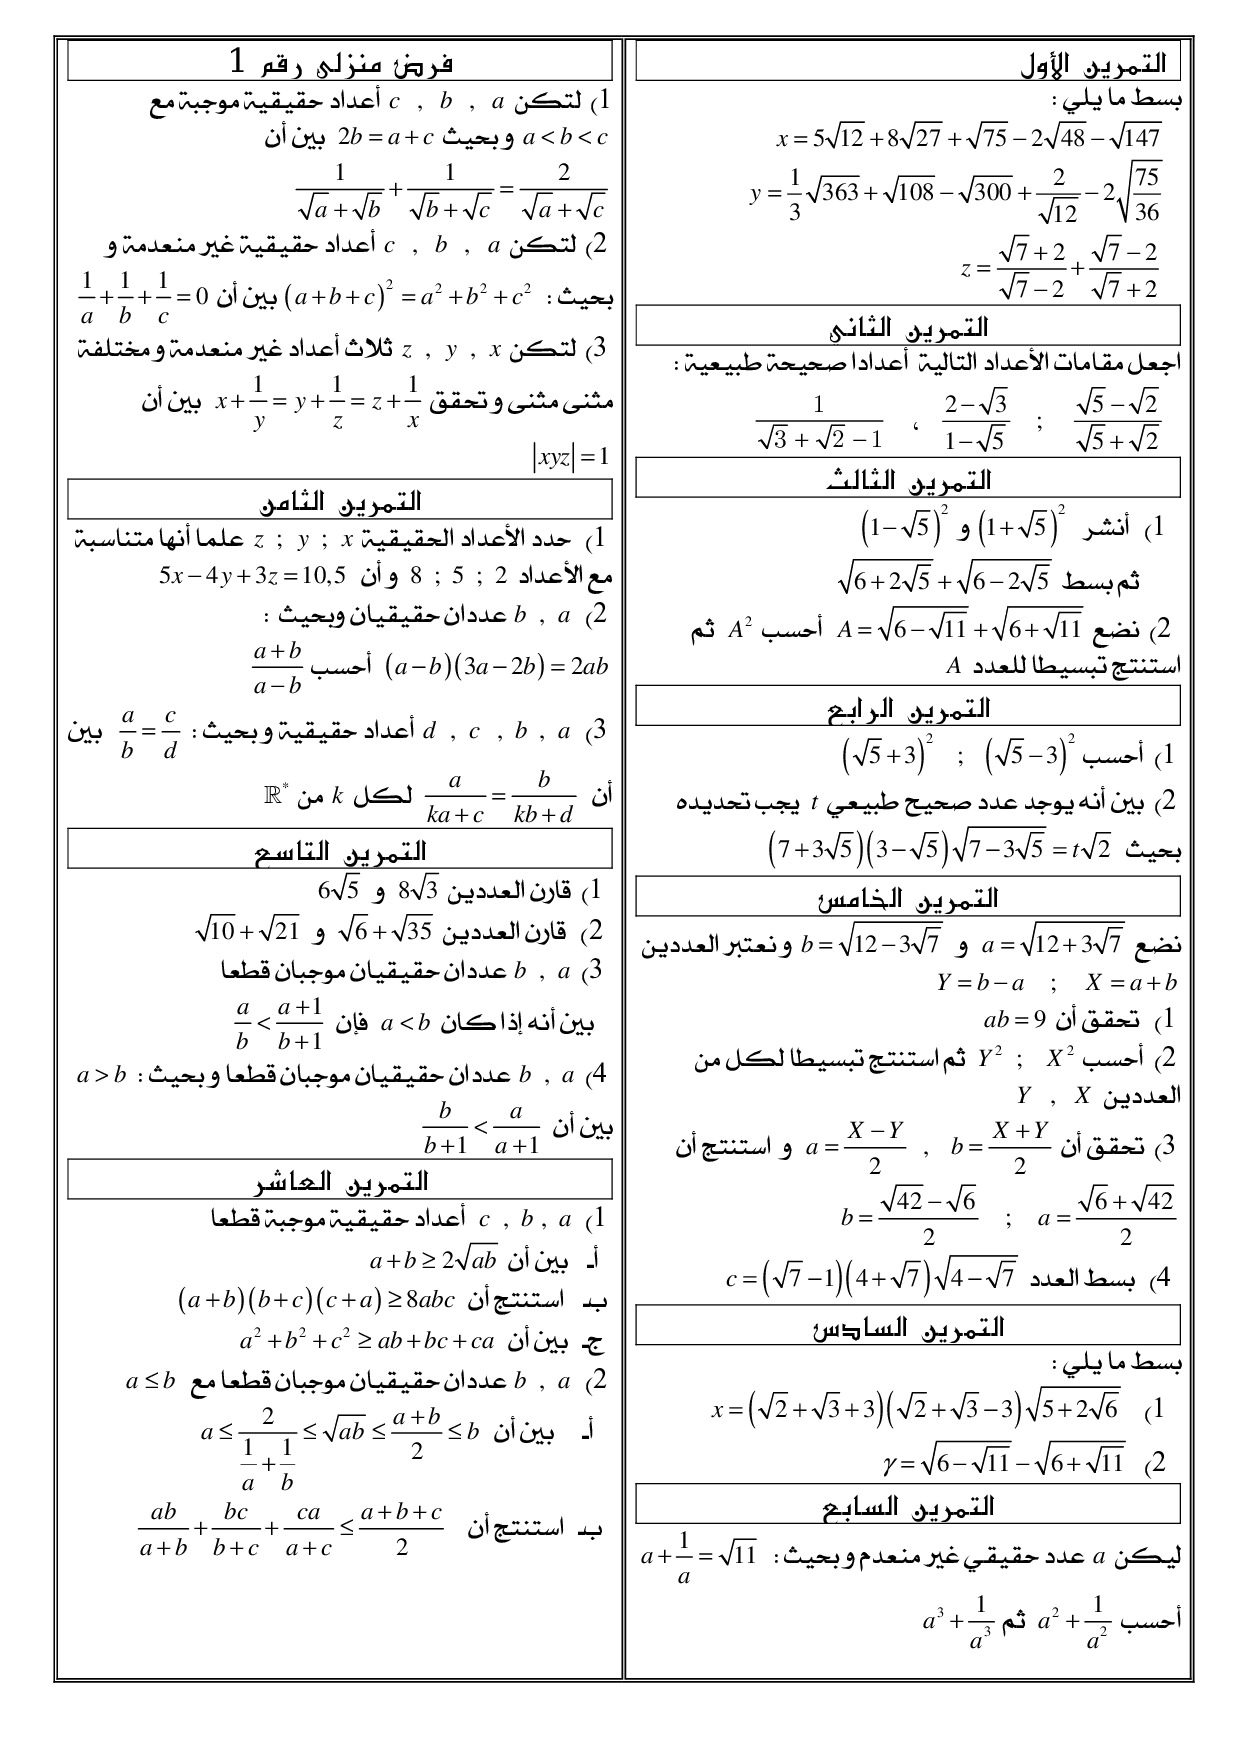 التمرين الأول
بسط ما يلي :
x = 5√12 + 8√27 + √75 − 2√48 − √147
y = 1/3 √363 + √108 − √300 + 2/√12 − 2√(75/36)
z = (√7 + 2)/(√7 − 2) + (√7 − 2)/(√7 + 2)
التمرين الثاني
اجعل مقامات الأعداد التالية أعدادا صحيحة طبيعية :
(√5 − √2)/(√5 + √2) ; (2 − √3)/(1 − √5) ، 1/(√3 + √2 − 1)
التمرين الثالث
1) أنشر (1 + √5)² و (1 − √5)²
ثم بسط √(6 + 2√5) + √(6 − 2√5)
2) نضع A = √(6 − √11) + √(6 + √11) أحسب A² ثم
استنتج تبسيطا للعدد A
التمرين الرابع
1) أحسب (√5 − 3)² ; (√5 + 3)²
2) بين أنه يوجد عدد صحيح طبيعي t يجب تحديده
بحيث (7 + 3√5)(3 − √5)√(7 − 3√5) = t√2
التمرين الخامس
نضع a = √(12 + 3√7) و b = √(12 − 3√7) و نعتبر العددين
X = a + b ; Y = b − a
1) تحقق أن ab = 9
2) أحسب X² ; Y² ثم استنتج تبسيطا لكل من
العددين X , Y
3) تحقق أن b = (X + Y)/2 , a = (X − Y)/2 و استنتج أن
a = (√6 + √42)/2 ; b = (√42 − √6)/2
4) بسط العدد c = (√7 − 1)(4 + √7)√(4 − √7)
التمرين السادس
بسط ما يلي :
1) x = (√2 + √3 + 3)(√2 + √3 − 3)√(5 + 2√6)
2) γ = √(6 − √11) − √(6 + √11)
التمرين السابع
ليكن a عدد حقيقي غير منعدم و بحيث : a + 1/a = √11
أحسب a² + 1/a² ثم a³ + 1/a³
فرض منزلي رقم 1
1) لتكن a , b , c أعداد حقيقية موجبة مع
a < b < c و بحيث 2b = a + c بين أن
1/(√a + √b) + 1/(√b + √c) = 2/(√a + √c)
2) لتكن a , b , c أعداد حقيقية غير منعدمة و
بحيث : (a + b + c)² = a² + b² + c² بين أن 1/a + 1/b + 1/c = 0
3) لتكن x , y , z ثلاث أعداد غير منعدمة و مختلفة
مثنى مثنى و تحقق x + 1/y = y + 1/z = z + 1/x بين أن
|xyz| = 1
التمرين الثامن
1) حدد الأعداد الحقيقية x ; y ; z علما أنها متناسبة
مع الأعداد 2 ; 5 ; 8 و أن 5x − 4y + 3z = 10,5
2) a , b عددان حقيقيان وبحيث :
(a − b)(3a − 2b) = 2ab أحسب (a + b)/(a − b)
3) a , b , c , d أعداد حقيقية و بحيث : a/b = c/d بين
أن a/(ka + c) = b/(kb + d) لكل k من ℝ*
التمرين التاسع
1) قارن العددين 8√3 و 6√5
2) قارن العددين √6 + √35 و √10 + √21
3) a , b عددان حقيقيان موجبان قطعا
بين أنه إذا كان a < b فإن a/b < (a + 1)/(b + 1)
4) a , b عددان حقيقيان موجبان قطعا و بحيث : a > b
بين أن b/(b + 1) < a/(a + 1)
التمرين العاشر
1) a , b , c أعداد حقيقية موجبة قطعا
أـ بين أن a + b ≥ 2√ab
بـ استنتج أن (a + b)(b + c)(c + a) ≥ 8abc
جـ بين أن a² + b² + c² ≥ ab + bc + ca
2) a , b عددان حقيقيان موجبان قطعا مع a ≤ b
أـ بين أن a ≤ 2/(1/a + 1/b) ≤ √ab ≤ (a + b)/2 ≤ b
بـ استنتج أن ab/(a + b) + bc/(b + c) + ca/(a + c) ≤ (a + b + c)/2